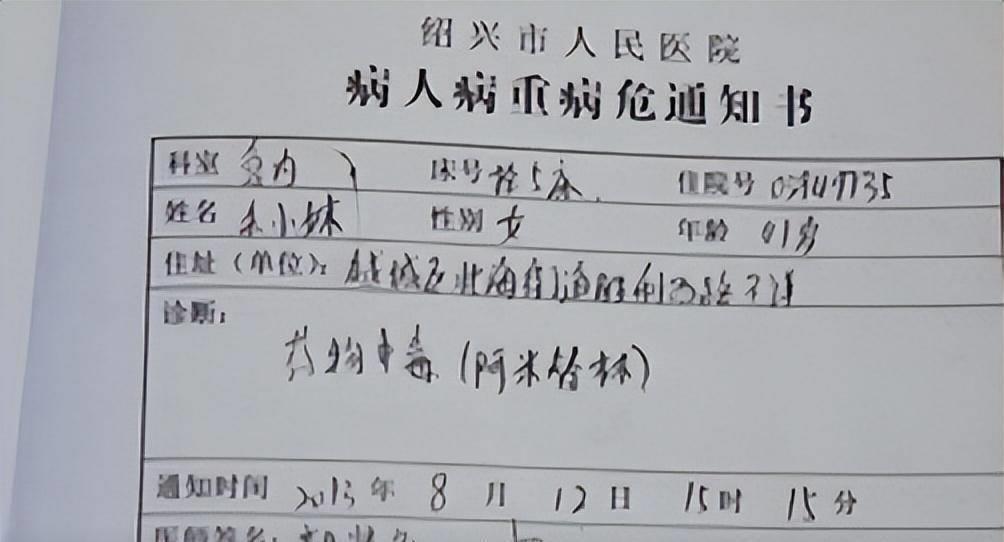 绍兴市人民医院
病人病重病危通知书
科室 急内 床号 抢5床 住院号
姓名 小妹 性别 女 年龄 岁
住址（单位）：越城区北海街道胜利西路不详
诊断：
药物中毒（阿米替林）
通知时间 2013年 8月 12日 15时 15分
医师签名：